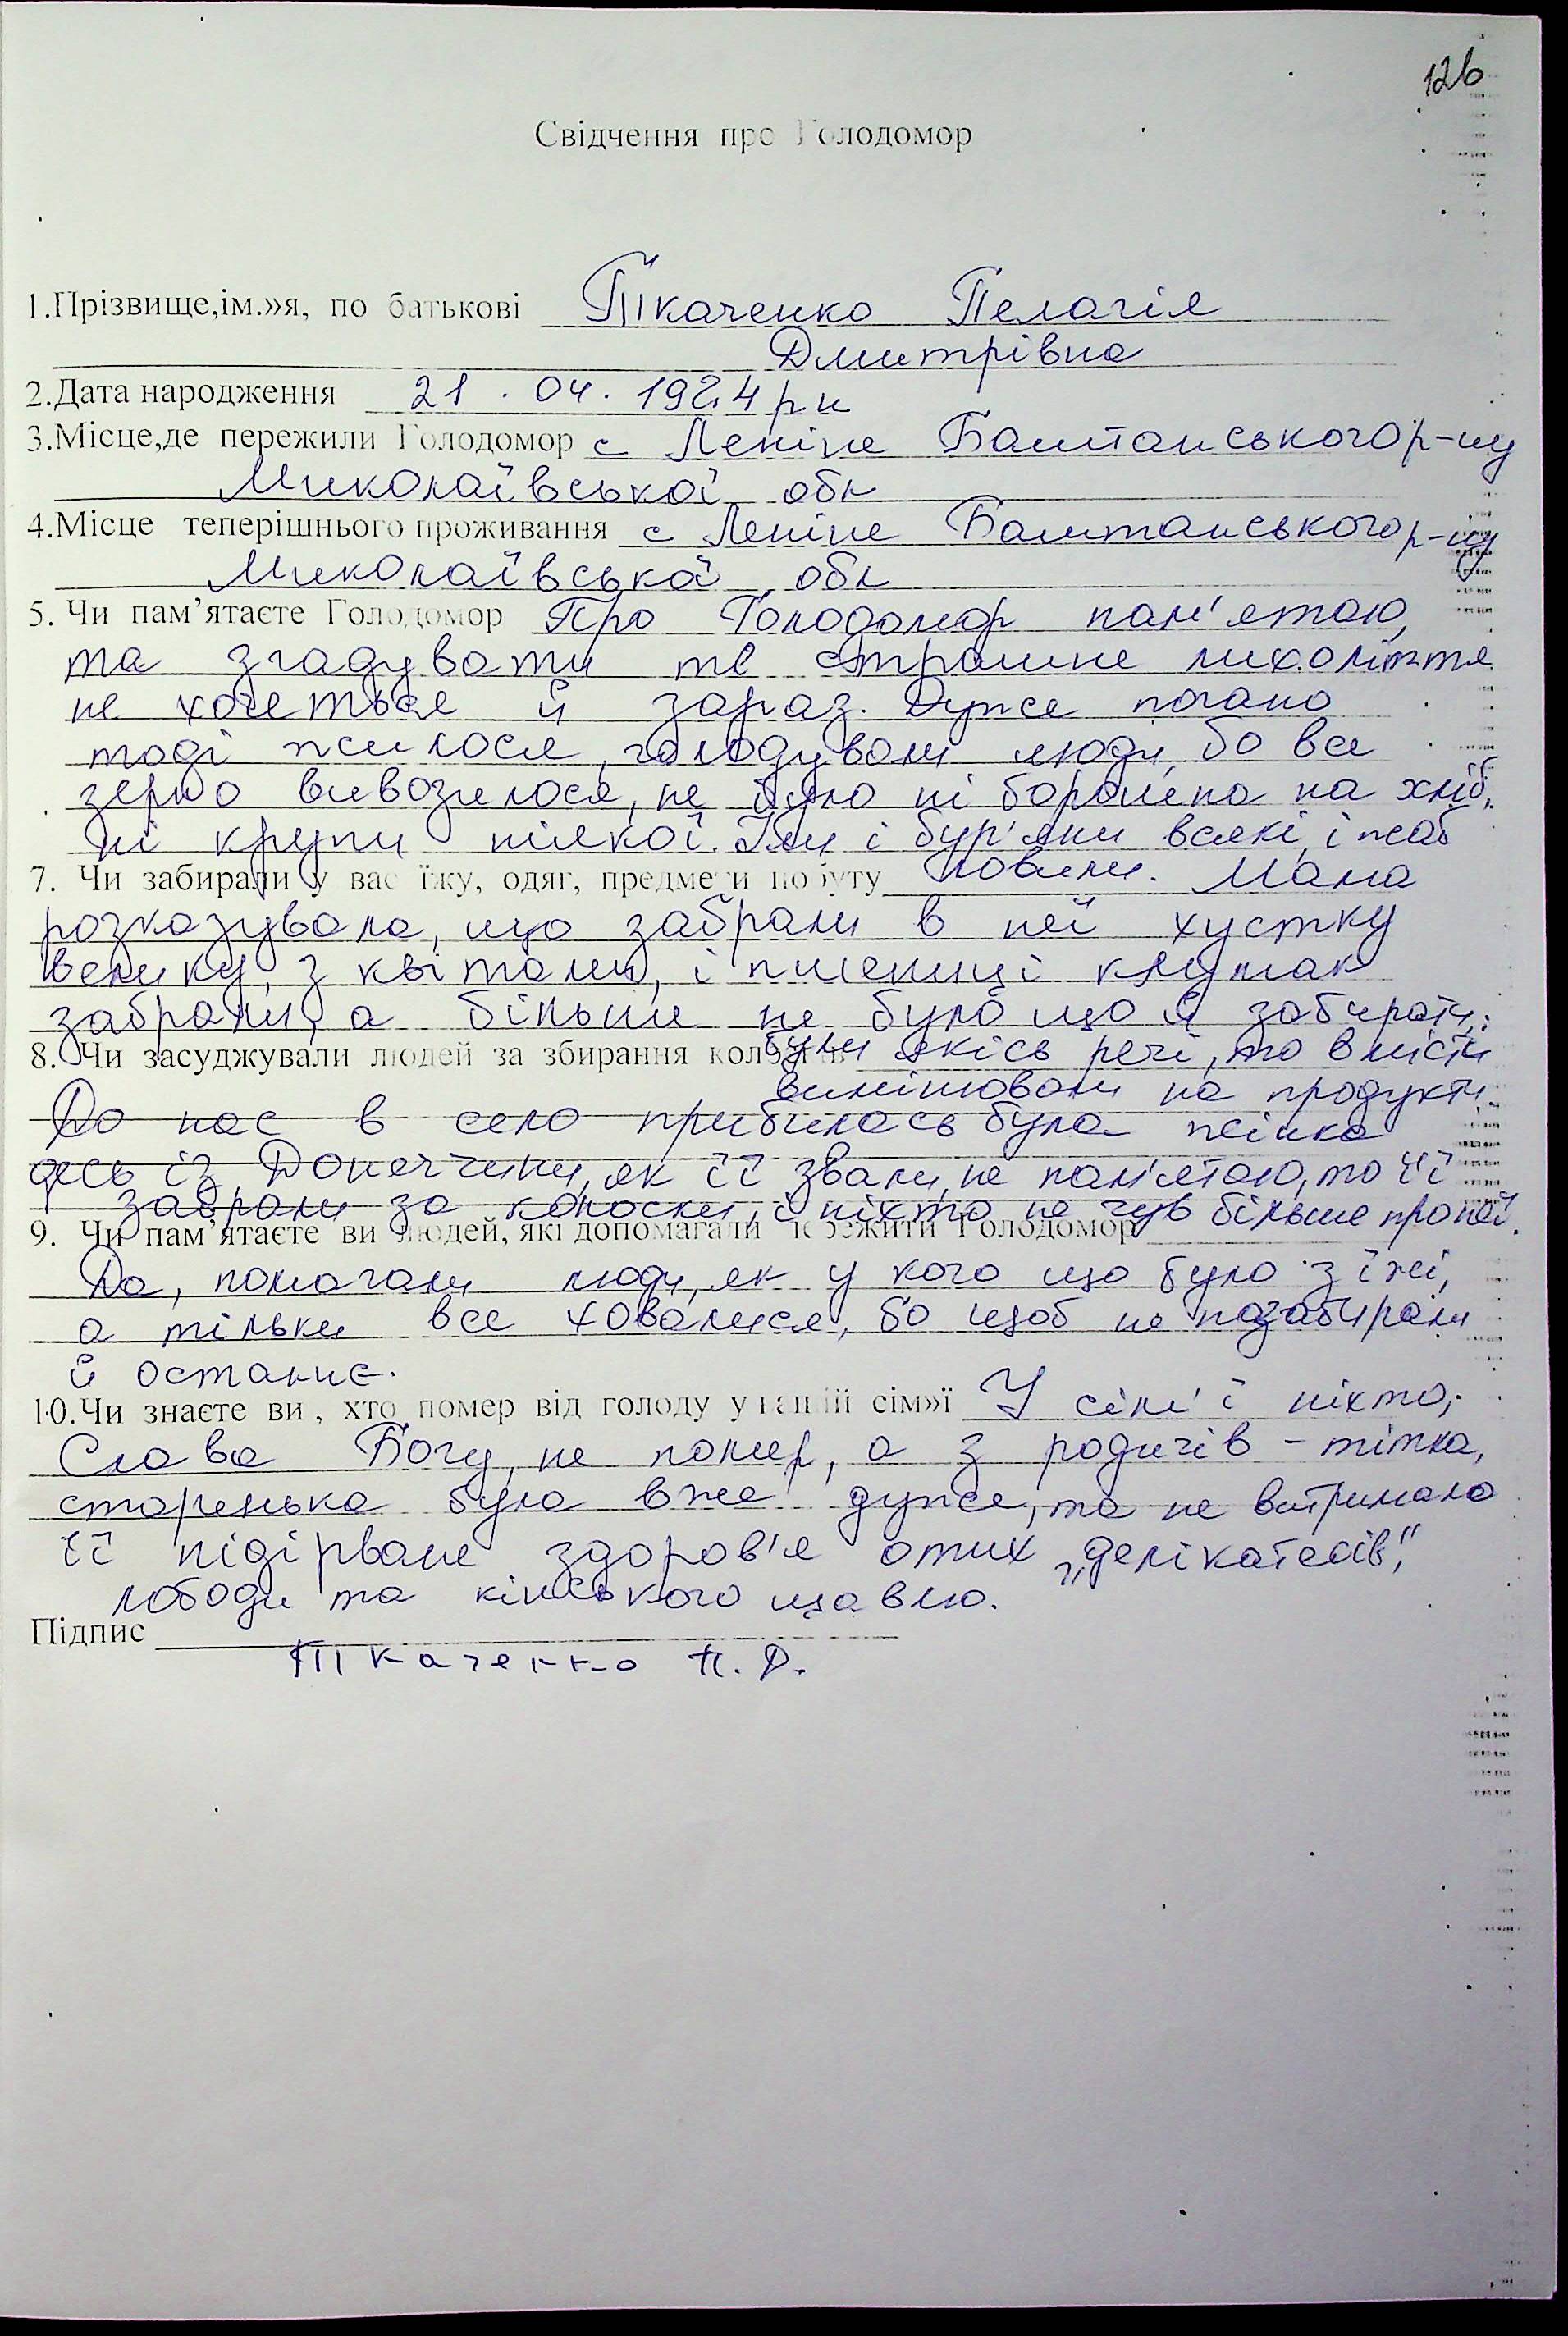 126
Свідчення про Голодомор
1.Прізвище,ім.»я, по батькові Ткаченко Пелагія
Дмитрівна
2.Дата народження 21.04.1924 р н
3.Місце,де пережили Голодомор с Леніне Баштанського р-ну
Миколаївської обл
4.Місце теперішнього проживання с Леніне Баштанського р-ну
Миколаївської обл
5. Чи пам'ятаєте Голодомор Про Голодомор пам'ятаю,
та згадувати те страшне лихоліття
не хочеться й зараз. Дуже погано
тоді жилося, голодували люди, бо все
зерно вивозилося, не було ні борошна на хліб,
ні крупи ніякої. Їли і бур'яни всякі, і жаб
7. Чи забирали у вас їжу, одяг, предмети побуту ловили. Мама
розказувала, що забрали в неї хустку
велику, з квітами, і пшениці клумак
забрали, а більше не було що й забирати:
8. Чи засуджували людей за збирання колосків були якісь речі, то в місті
вимінювали на продукти.
До нас в село прибилась була жінка
десь із Донеччини, як її звали, не пам'ятаю, то її
забрали за колоски, і ніхто не чув більше про неї.
9. Чи пам'ятаєте ви людей, які допомагали пережити Голодомор
Да, помагали люди, як у кого що було з їжі,
а тільки все ховалися, бо щоб не позабирали
й останнє.
10.Чи знаєте ви , хто помер від голоду у вашій сім»ї У сім'ї ніхто,
Слава Богу, не помер, а з родичів - тітка,
старенька була вже дуже, та не витримало
її підірване здоров'я отих „делікатесів",
лободи та кінського щавлю.
Підпис
Ткаченко П. Д.